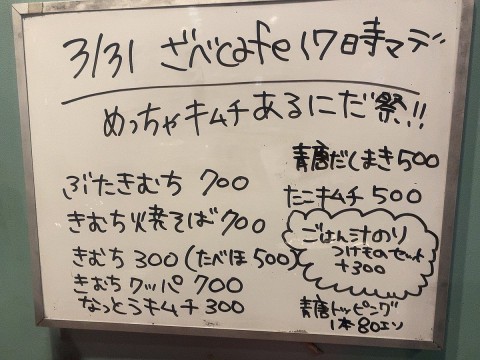 3/31 ざべcafe 17時マデ
めっちゃキムチあるにだ祭!!
ぶたきむち 700
きむち焼そば 700
きむち 300 (たべほ 500)
きむちクッパ 700
なっとうキムチ 300
青唐だしまき 500
たこキムチ 500
ごはん汁のり
つけものセット
+300
青唐トッピング
1本80エン